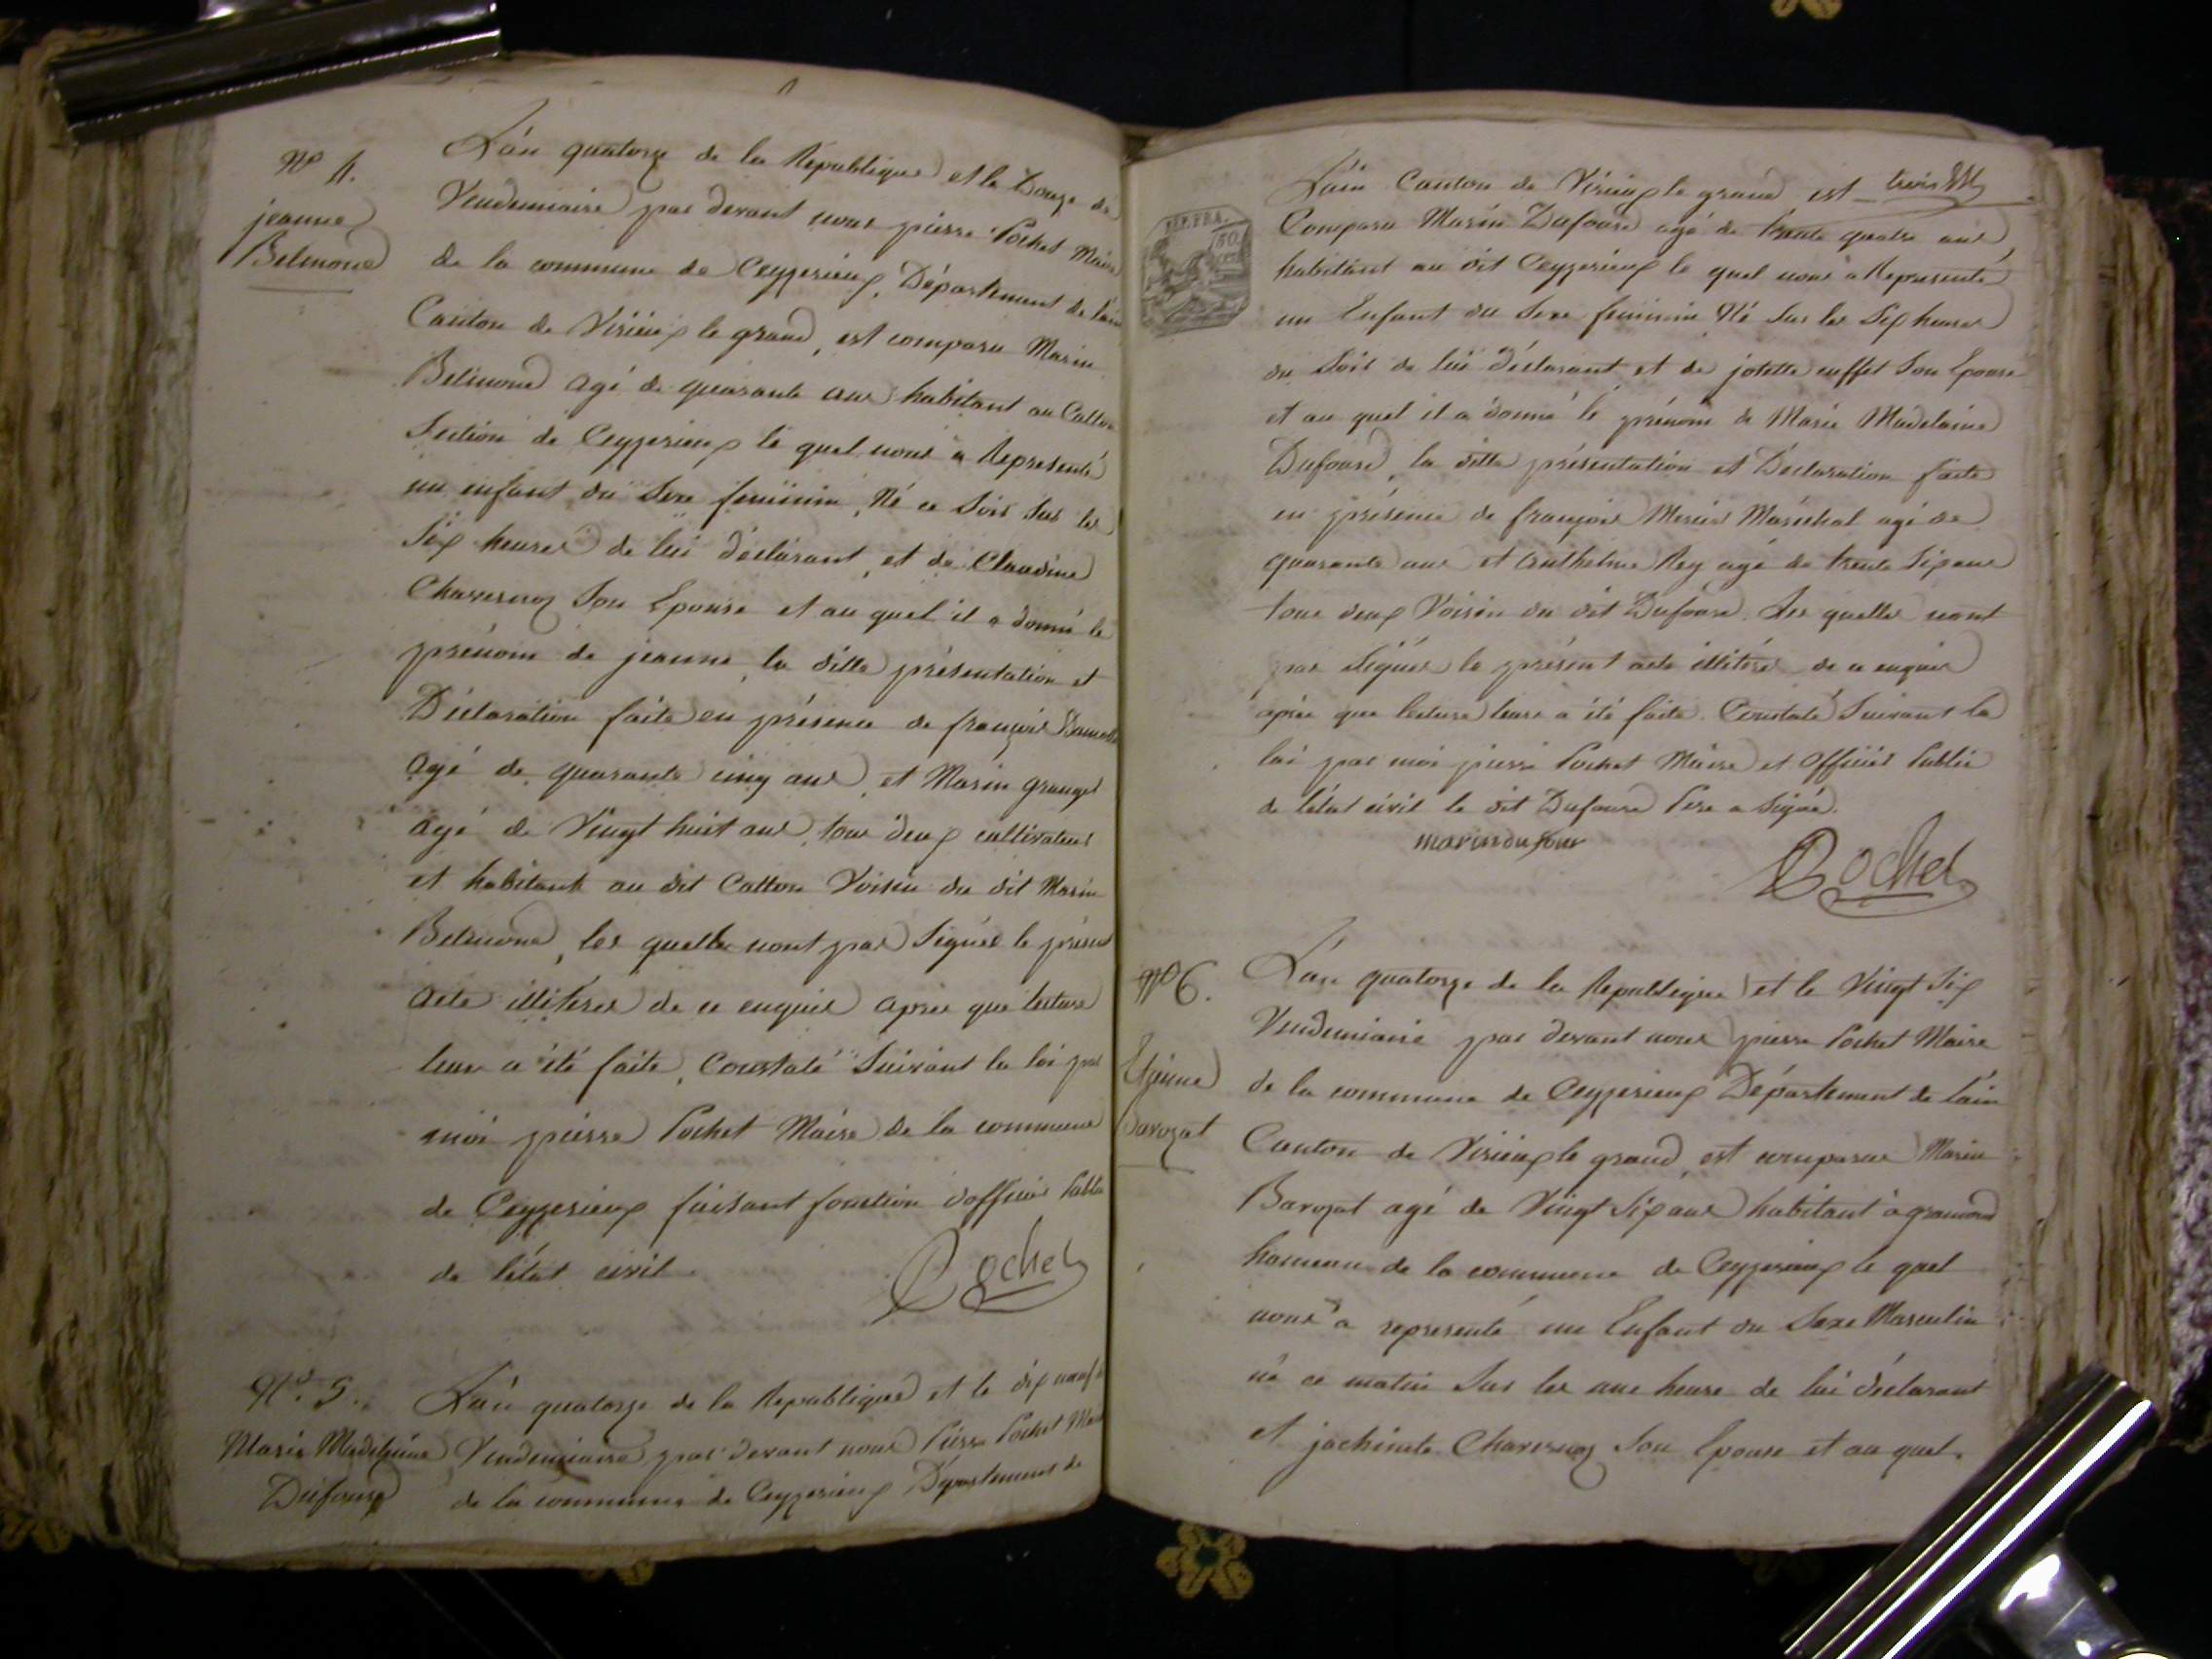 Nº 4.
jeanne
Belmond
L'án quatorze de la République et le Douze de
Vendemiaire par devant nous pierre Pochet Maire
de la commune de Ceyzerieux, Département de l'ain
Canton de Virieux le grand, est comparu Marin
Belmond agé de quarante ans habitant au Catton
Section de Ceyzerieux le quel nous a Representé
un enfant du Sexe feminin, Né ce Soir Sur les
Six heures de lui déclarant, et de Claudine
Son Epouse et au quel il a donné le
prénom de jeanne, la ditte présentation et
Déclaration faite en présence de françois
agé de quarante cinq ans, et Marin granger
agé de Vingt huit ans, tous deux cultivateurs
et habitants au dit Catton Voisin du dit Marin
Belmond, les quelles nont pas Signés le présent
acte illiteres de ce enquis après que lecture
leur a été faite, Constaté Suivant la loi par
moi pierre Pochet Maire de la commune
de Ceyzerieux faisant fonction d'officier Public
de l'état civil
Pochet
Nº. 5.
Marie Madelaine
Dufour
L'án quatorze de la République et le dix neuf
Vendemiaire par devant nous Pierre Pochet Maire
de la commune de Ceyzerieux Département de
trois
L'ain Canton de Virieux le grand est
REP. FRA.
Comparu Marin Dufour agé de trente quatre ans
habitant au dit Ceyzerieux le quel nous a Representé
un Enfant du Sexe feminin Né Sur les Six heures
du Soir de lui déclarant et de josette cuffet Son Epouse
et au quel il a donné le prénom de Marie Madelaine
Dufour, la ditte présentation et Déclaration faite
en présence de françois Mercier Maréchal agé de
quarante ans et Anthelme Rey agé de trente Six ans
tous deux Voisin du dit Dufour. Les quelles nont
pas Signés le présent acte illiteres de ce enquis
après que lecture leur a été faite. Constaté Suivant la
loi par moi pierre Pochet Maire et Officier Public
de l'état civil le dit Dufour Pere a Signé.
marin dufour
Pochet
Nº 6.
Barozat
L'án quatorze de la République et le Vingt Six
Vendemiaire par devant nous pierre Pochet Maire
de la commune de Ceyzerieux Département de l'ain
Canton de Virieux le grand, est comparu Marin
Barozat agé de Vingt Six ans habitant à
hameau de la commune de Ceyzerieux le quel
nous a representé un Enfant du Sexe Masculin
né ce matin Sur les une heure de lui déclarant
et jachinte Son Epouse et au quel